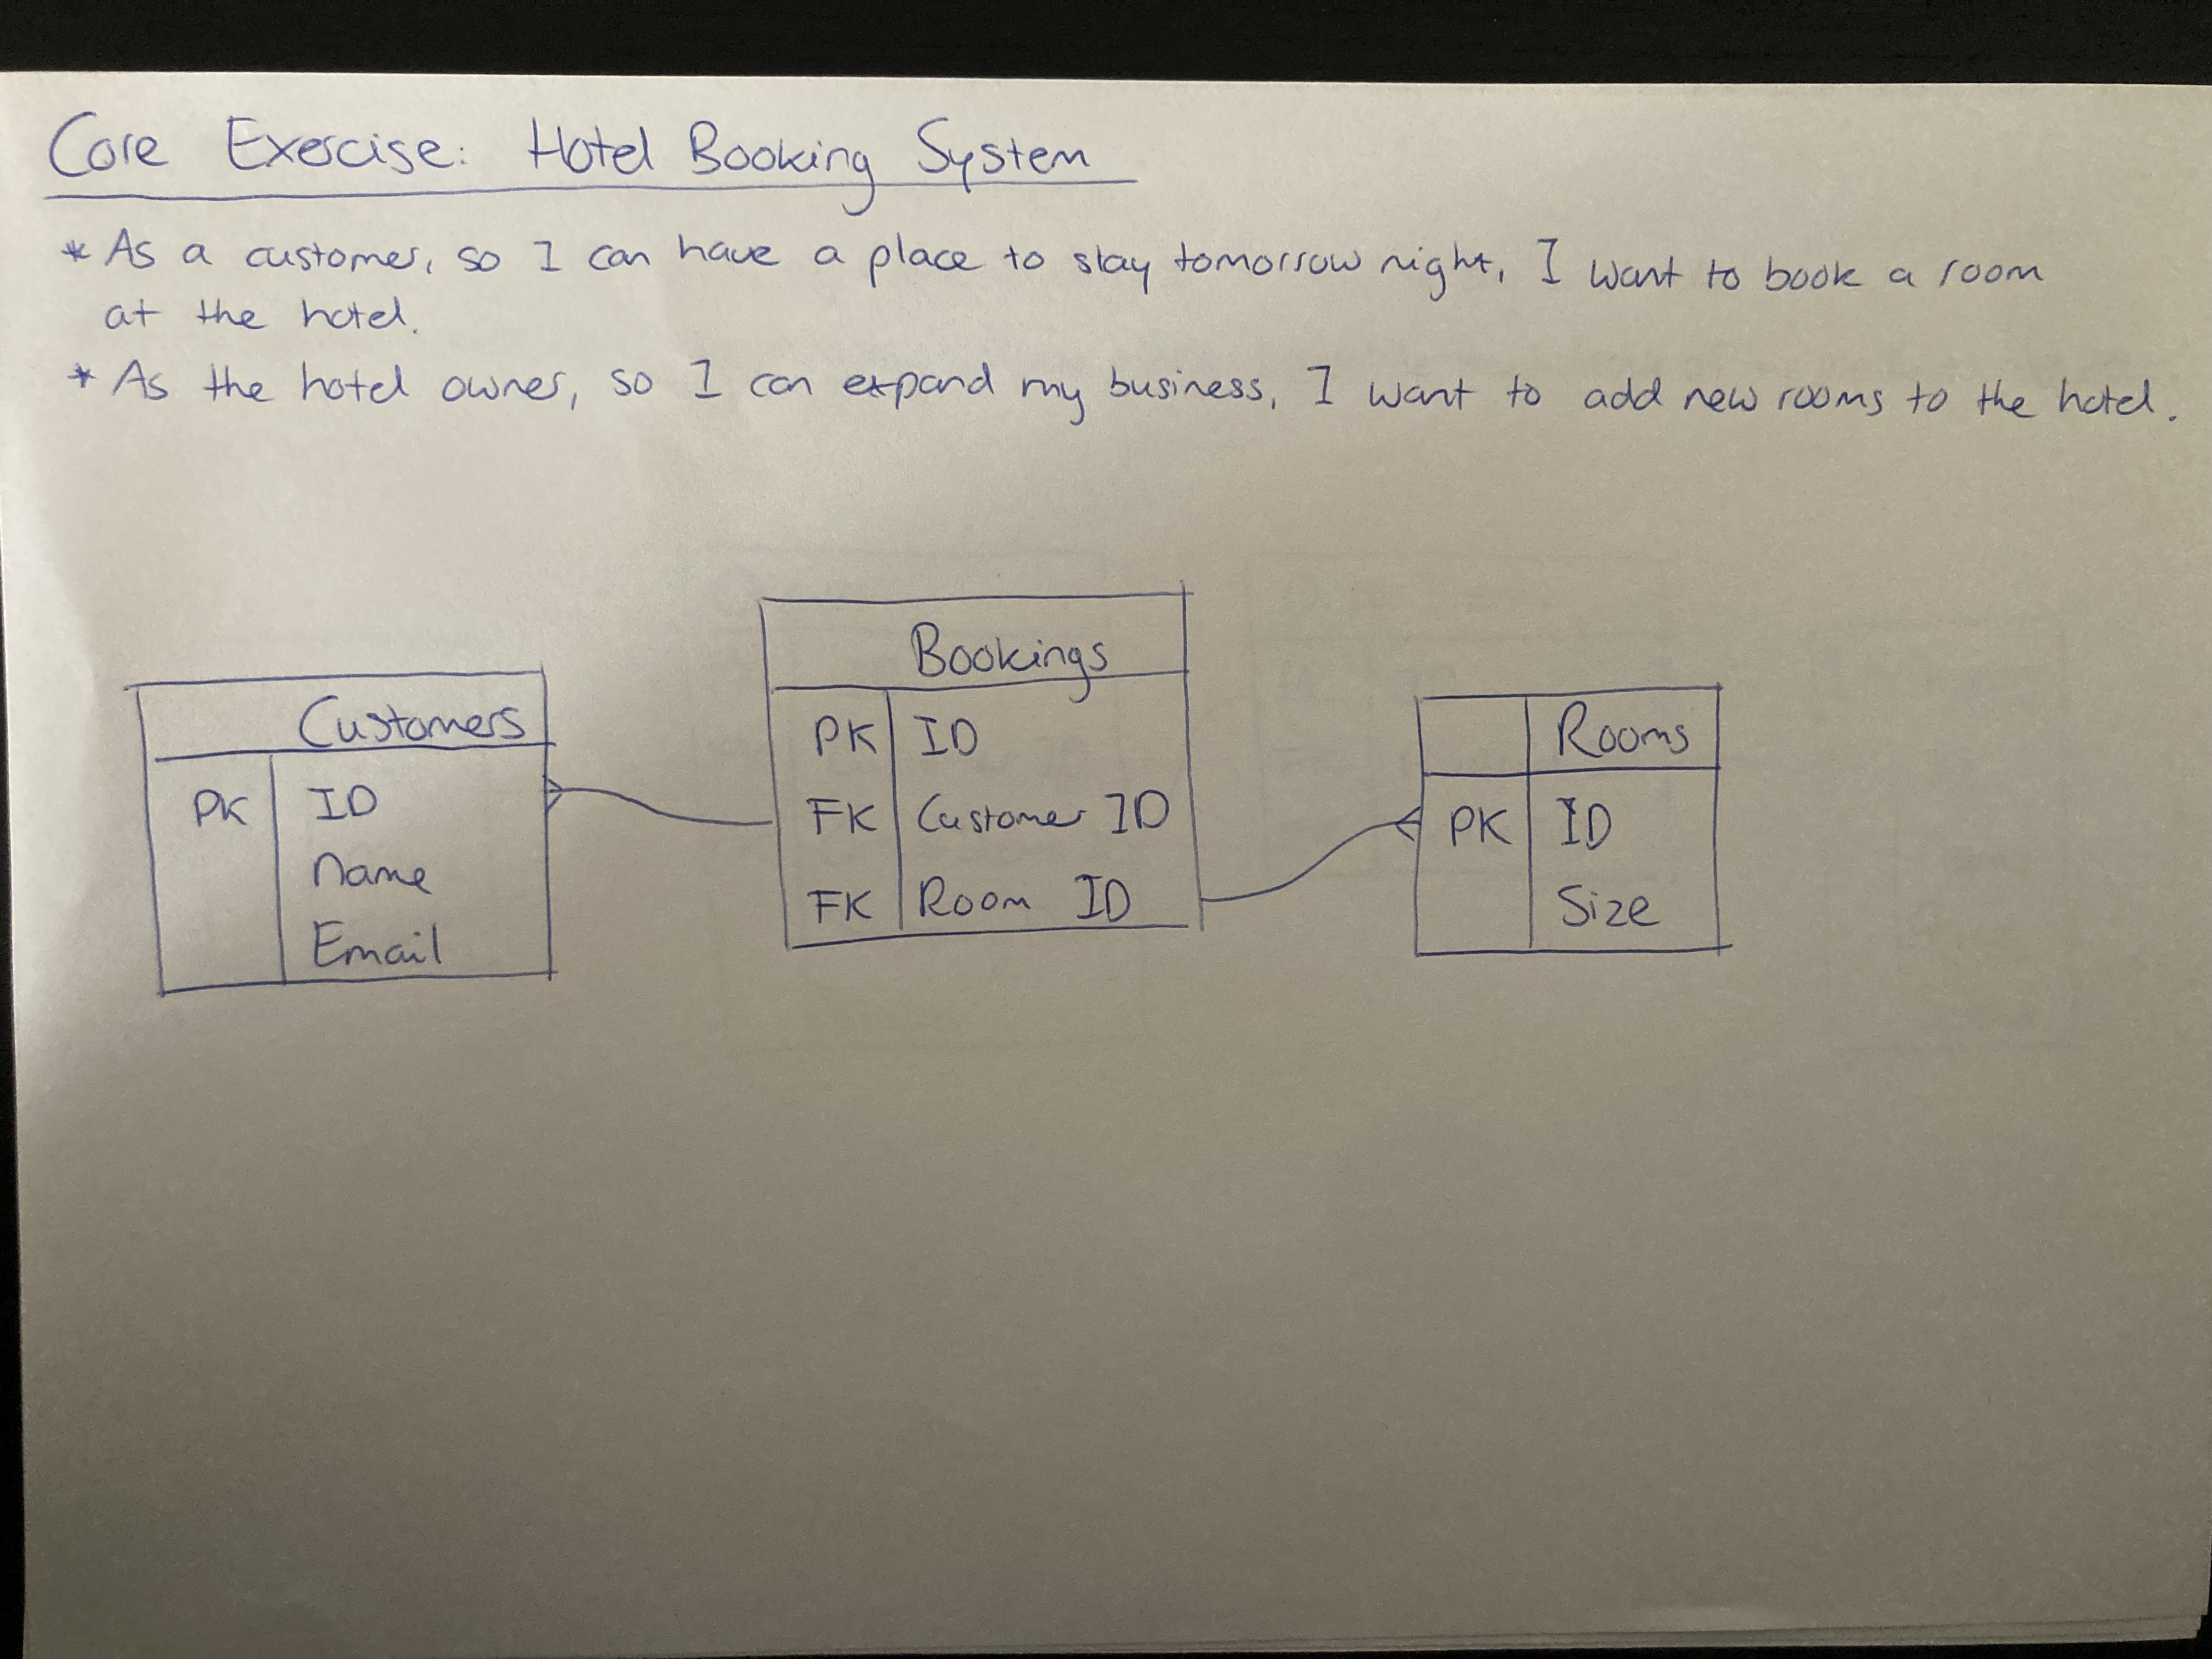 Core Exercise: Hotel Booking System
* As a customer, so I can have a place to stay tomorrow night, I want to book a room
at the hotel.
* As the hotel owner, so I can expand my business, I want to add new rooms to the hotel.
Customers
PK ID
Name
Email
Bookings
PK ID
FK Customer ID
FK Room ID
Rooms
PK ID
Size